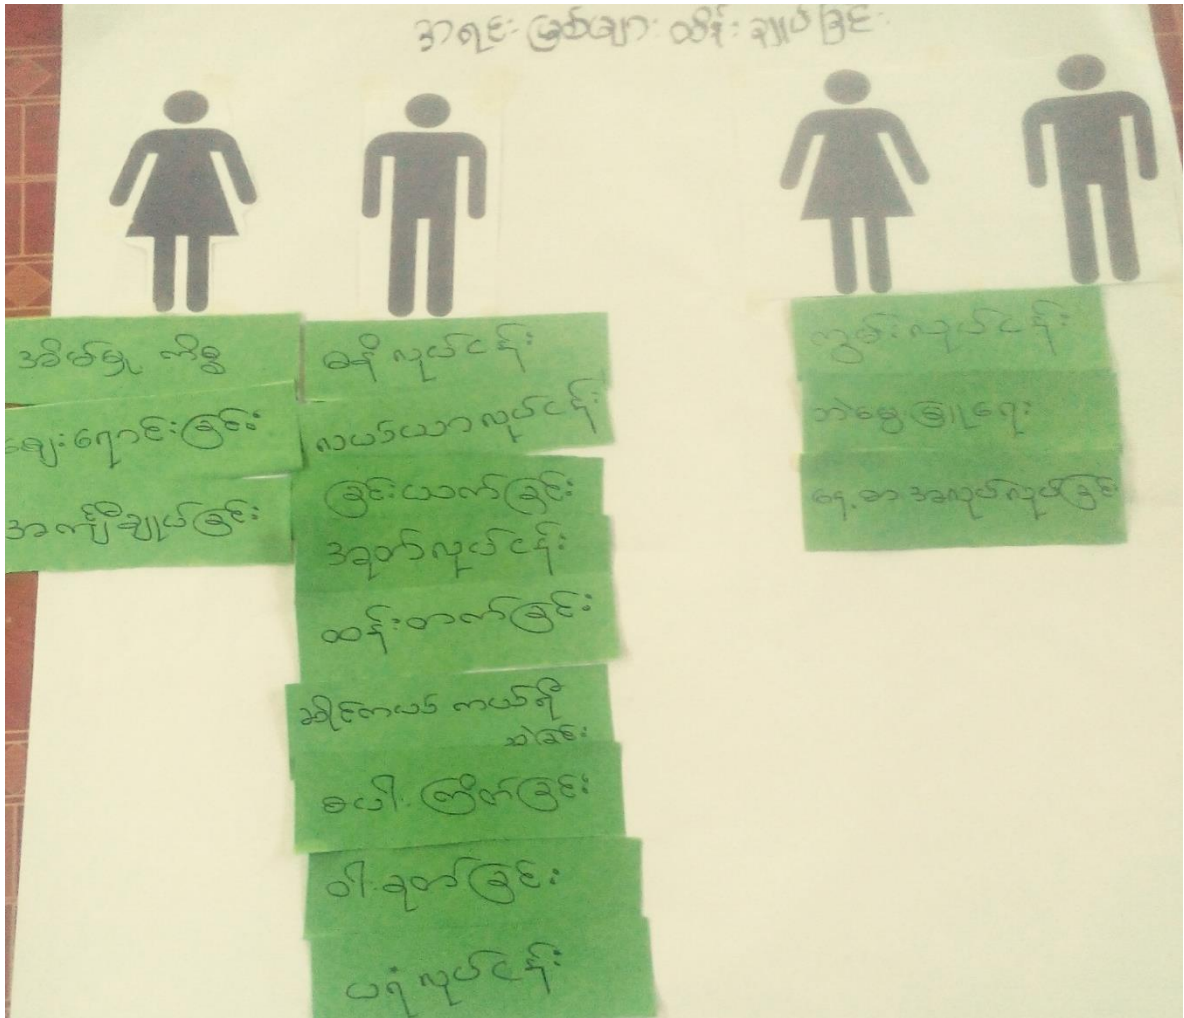 အရင်းအမြစ်များ ထိန်းချုပ်ခြင်း
အိမ်မှု ကိစ္စ
ဈေးရောင်းခြင်း
အင်္ကျီချုပ်ခြင်း
ဓနိ လုပ်ငန်း
လယ်ယာ လုပ်ငန်း
ခြင်းယက်ခြင်း
အုတ်လုပ်ငန်း
ထန်းတက်ခြင်း
ဆိုင်ကယ် ကယ်ရီ
ဆွဲခြင်း
စပါး ကြိတ်ခြင်း
ဝါး ခုတ်ခြင်း
ပရံ လုပ်ငန်း
ကွမ်းလုပ်ငန်း
ဘဲမွေးမြူရေး
နေ့စား အလုပ်လုပ်ခြင်း